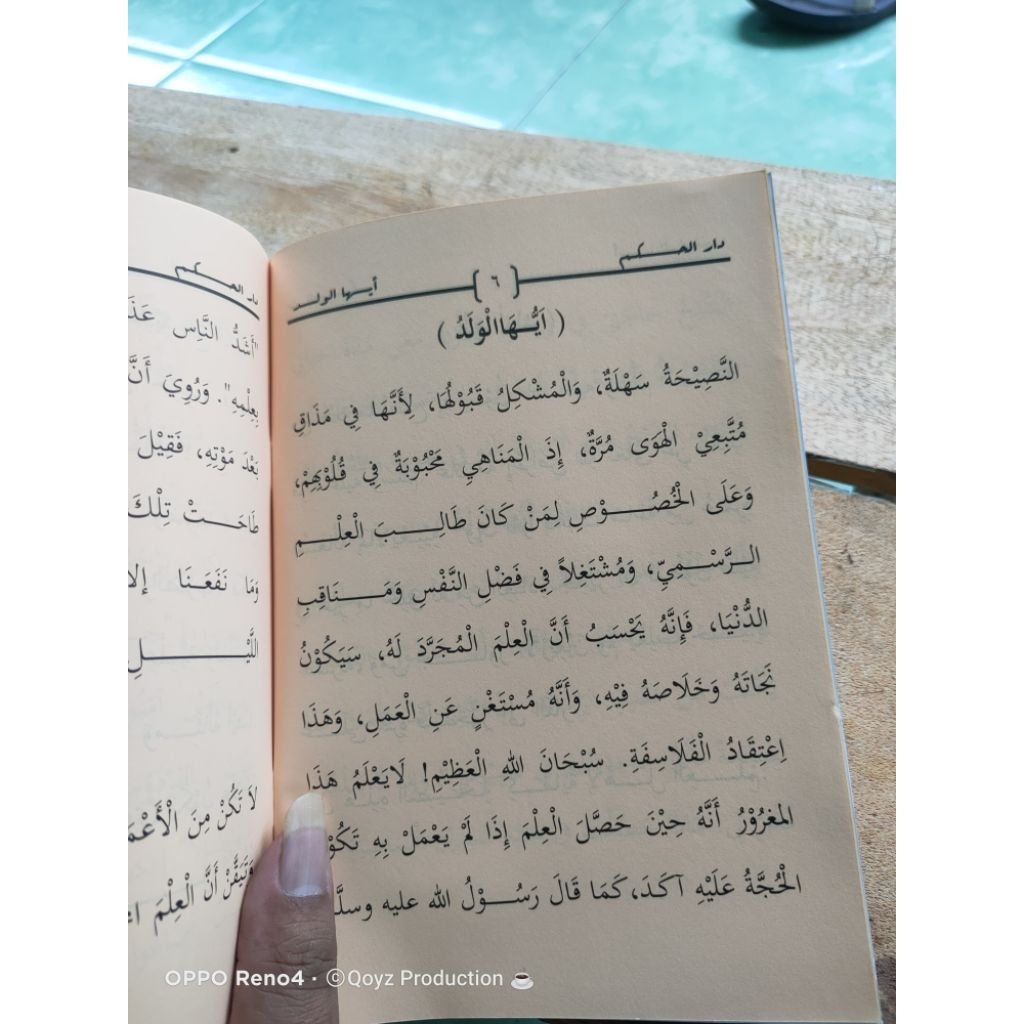 دار الحكم
{ ٦ }
أيها الولد
( اَيُّهَاالْوَلَدُ )
النَّصِيْحَةُ سَهْلَةٌ، وَالْمُشْكِلُ قَبُوْلُهَا، لِأَنَّهَا فِي مَذَاقِ
مُتَّبِعِيْ الْهَوَى مُرَّةٌ، إِذَ الْمَنَاهِي مَحْبُوْبَةٌ فِي قُلُوْبِهِمْ،
وَعَلَى الْخُصُوْصِ لِمَنْ كَانَ طَالِبَ الْعِلْمِ
الرَّسْمِيِّ، وَمُشْتَغِلاً فِي فَضْلِ النَّفْسِ وَمَنَاقِبِ
الدُّنْيَا، فَإِنَّهُ يَحْسَبُ أَنَّ الْعِلْمَ الْمُجَرَّدَ لَهُ، سَيَكُوْنُ
نَجَاتَهُ وَخَلَاصَهُ فِيْهِ، وَأَنَّهُ مُسْتَغْنٍ عَنِ الْعَمَلِ، وَهَذَا
اِعْتِقَادُ الْفَلَاسِفَةِ. سُبْحَانَ اللهِ الْعَظِيْمِ! لَايَعْلَمُ هَذَا
المغرُوْرُ أَنَّهُ حِيْنَ حَصَّلَ الْعِلْمَ إِذَا لَمْ يَعْمَلْ بِهِ
الْحُجَّةُ عَلَيْهِ آكَدَ، كَمَا قَالَ رَسُوْلُ الله عليه وسلَّم
دار الحكم
"أَشَدُّ النَّاسِ
بِعِلْمِهِ". وَرُوِيَ أَنَّ
بَعْدَ مَوْتِهِ، فَقِيْلَ
طَاحَتْ تِلْكَ
وَمَا نَفَعَنَا إلا
اللَّيْلِ
لاَ تَكُنْ مِنَ
وَتَيَقَّنْ أَنَّ الْعِلْمَ
OPPO Reno4 · ©Qoyz Production ☕